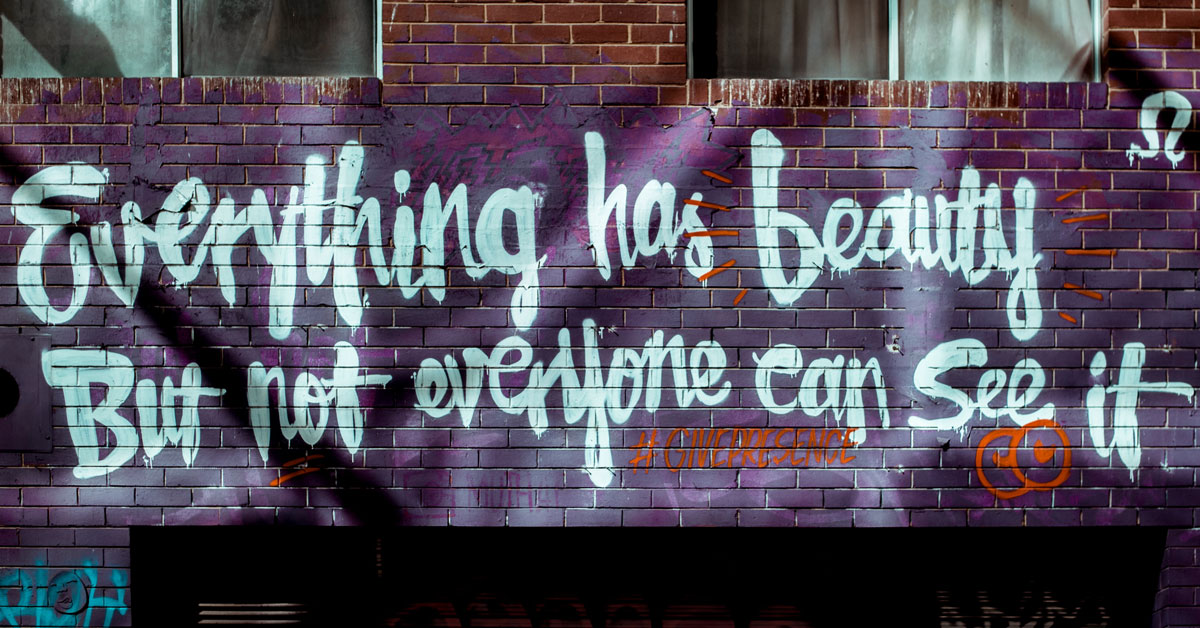 Everything has beauty
But not everyone can see it
#GIVEPRESENCE